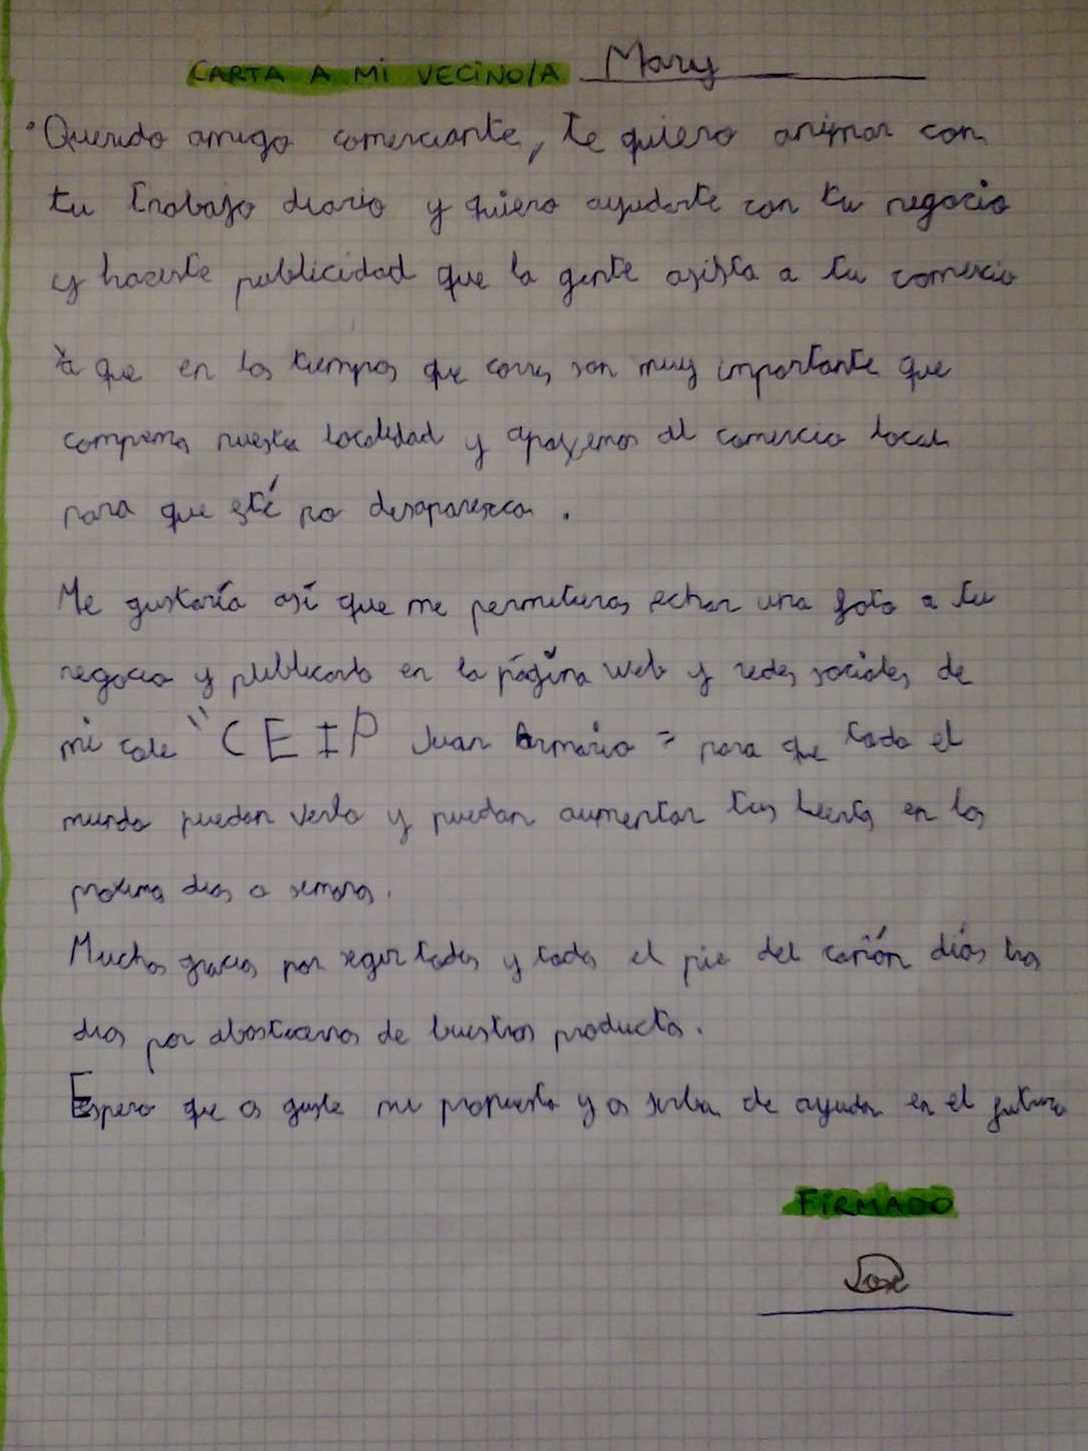 CARTA A MI VECINO/A Mary
Querido amigo comerciante, te quiero animar con
tu trabajo diario y quiero ayudarte con tu negocio
y hacerte publicidad que la gente asista a tu comercio
ya que en los tiempos que corres son muy importante que
compremos nuestra localidad y apoyemos al comercio local
para que esté no desaparezca.
Me gustaría así que me permitieras echar una foto a tu
negocio y publicarlo en la página web y redes sociales de
mi cole "CEIP Juan Armario" para que todo el
mundo puedan verlo y puedan aumentar tus en los
proximos dias o semanas.
Muchas gracias por seguir todos y todas el pie del cañón días tras
dias por abastecernos de buestros productos.
Espero que os guste mi propuesta y os serba de ayuda en el futuro
FIRMADO
Jose